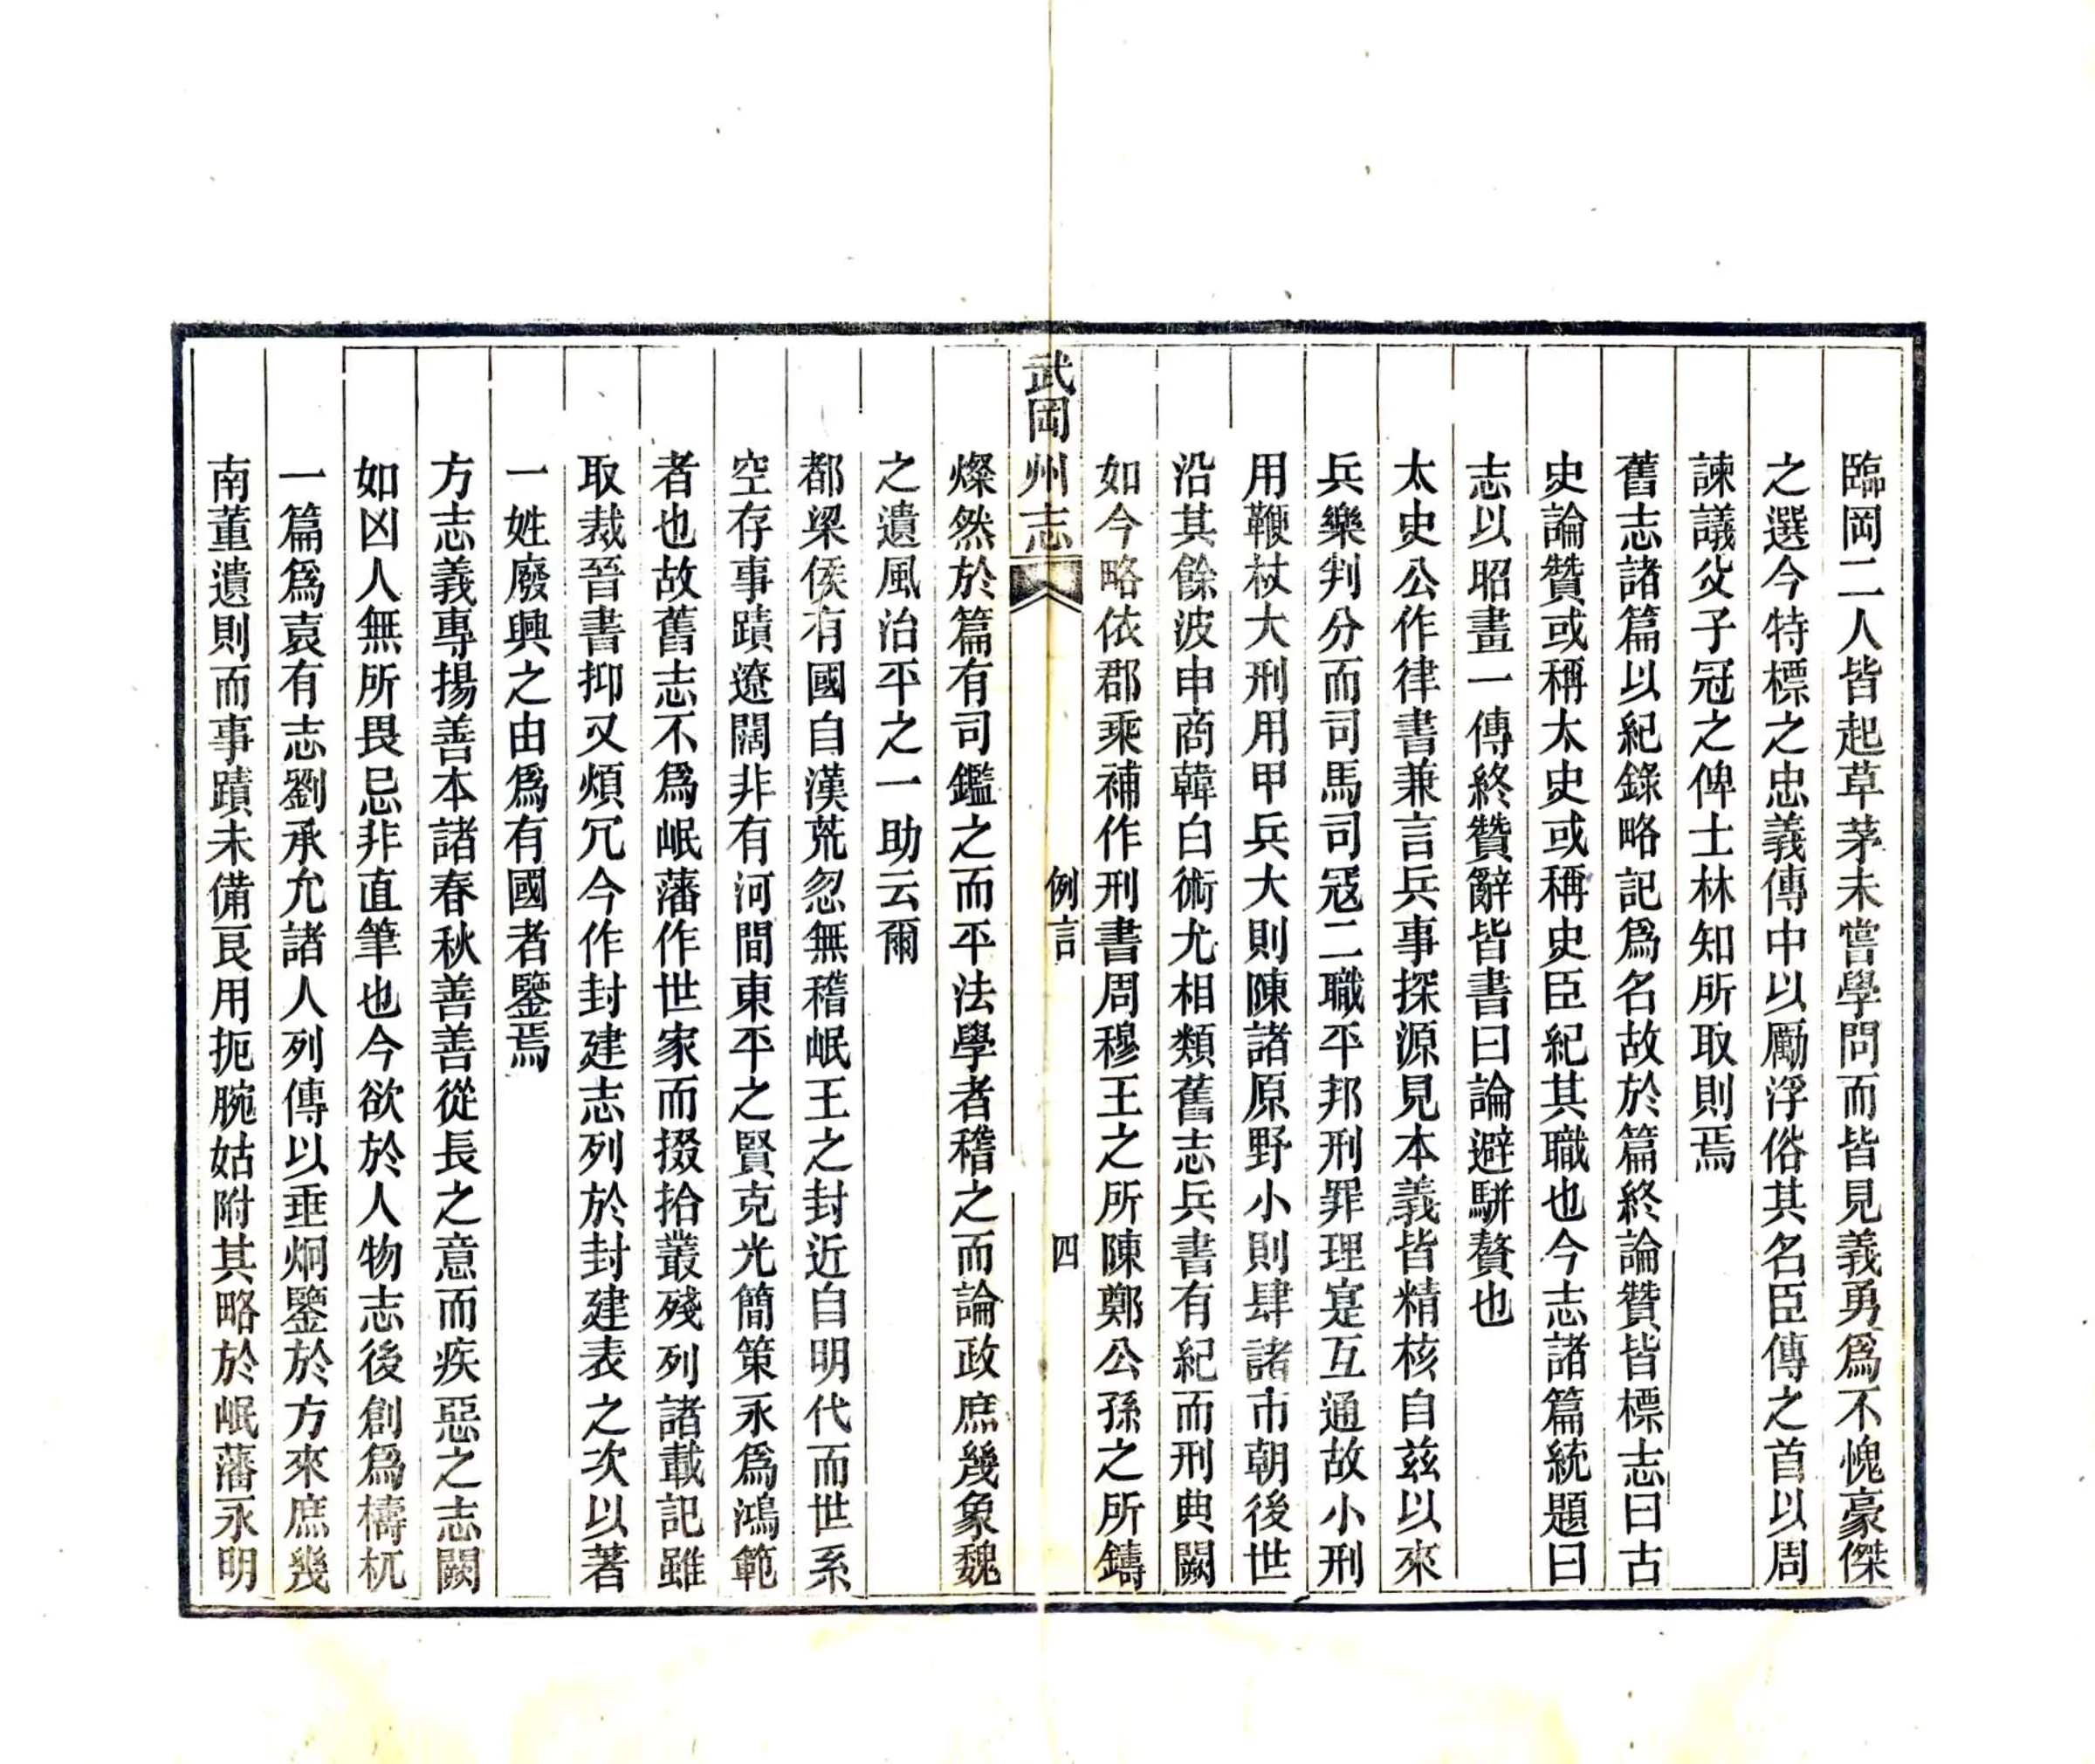 臨岡二人皆起草茅未嘗學問而皆見義勇爲不愧豪傑
之選今特標之忠義傳中以勵浮俗其名臣傳之首以周
諫議父子冠之俾士林知所取則焉
舊志諸篇以紀錄略記爲名故於篇終論贊皆標志曰古
史論贊或稱太史或稱史臣紀其職也今志諸篇統題曰
志以昭畫一傳終贊辭皆書曰論避駢贅也
太史公作律書兼言兵事探源見本義皆精核自茲以來
兵樂判分而司馬司寇二職平邦刑罪理寔互通故小刑
用鞭杖大刑用甲兵大則陳諸原野小則肆諸市朝後世
沿其餘波申商韓白術尤相類舊志兵書有紀而刑典闕
如今略依郡乘補作刑書周穆王之所陳鄭公孫之所鑄
武岡州志
例言
四
燦然於篇有司鑑之而平法學者稽之而論政庶幾象魏
之遺風治平之一助云爾
都梁侯有國自漢荒忽無稽岷王之封近自明代而世系
空存事蹟遼闊非有河間東平之賢克光簡策永爲鴻範
者也故舊志不爲岷藩作世家而掇拾叢殘列諸載記雖
取裁晉書抑又煩冗今作封建志列於封建表之次以著
一姓廢興之由爲有國者鑒焉
方志義專揚善本諸春秋善善從長之意而疾惡之志闕
如凶人無所畏忌非直筆也今欲於人物志後創爲檮杌
一篇爲袁有志劉承允諸人列傳以垂炯鑒於方來庶幾
南董遺則而事蹟未備良用扼腕姑附其略於岷藩永明